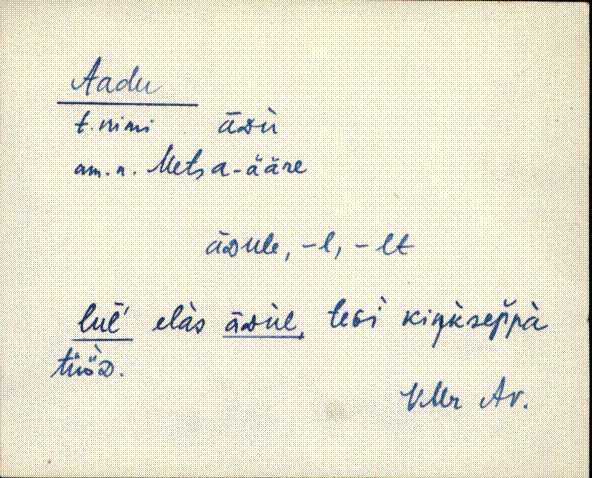 Aadu
t. nimi āᴅù
am. n. Metsa-ääre
āᴅule, -l, -lt
elàs āᴅùl, teɢì kiŋkseppà
tüöᴅ.
VMr Av.